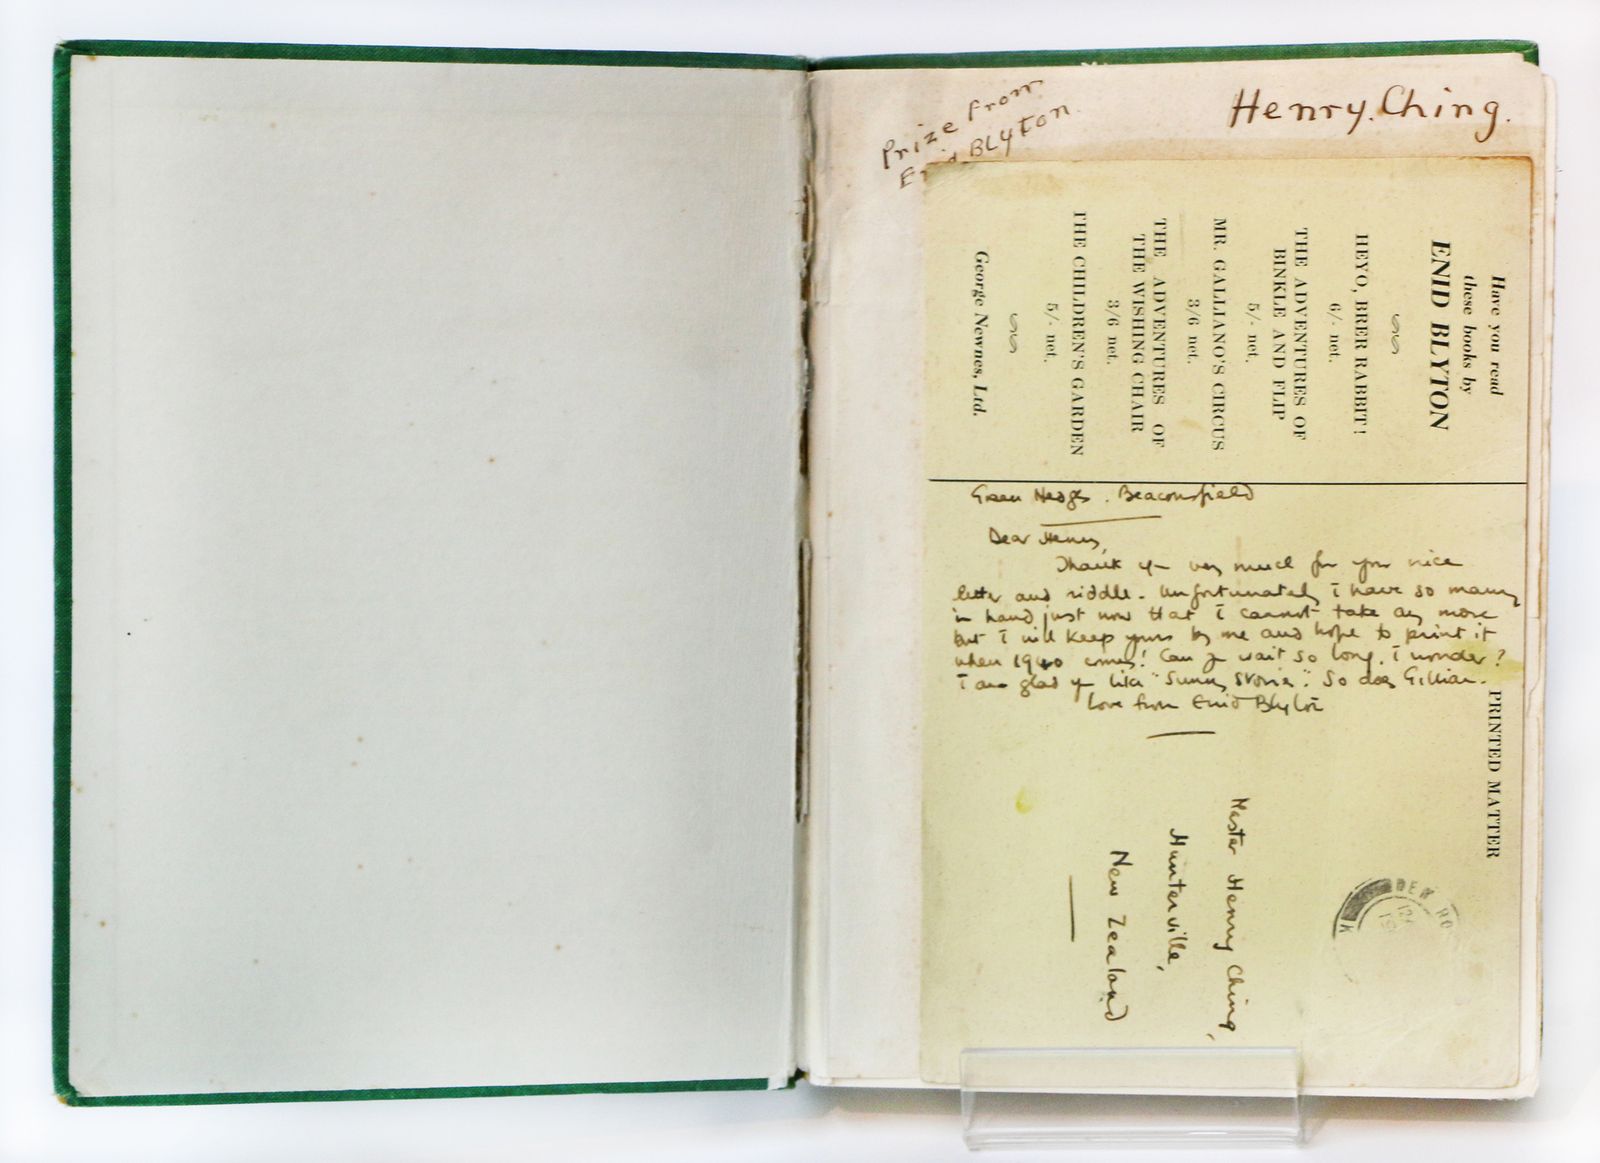 Prize From
Enid BLyton.
Henry. Ching.
Have you read
these books by
ENID BLYTON
HEYO, BRER RABBIT!
6/- net.
THE ADVENTURES OF
BINKLE AND FLIP
5/- net.
MR. GALLIANO'S CIRCUS
3/6 net.
THE ADVENTURES OF
THE WISHING CHAIR
3/6 net.
THE CHILDREN'S GARDEN
5/- net.
George Newnes, Ltd.
Green Hedges. Beaconsfield
Dear Henry,
Thank you very much for your nice
letter and riddle. Unfortunately I have so many
in hand just now that I cannot take any more
but I will keep yours by me and hope to print it
when 1940 comes! Can you wait so long, I wonder?
I am glad you like "Sunny Stories". So does Gillian.
Love from Enid Blyton
PRINTED MATTER
Master Henry Ching,
Hunterville,
New Zealand